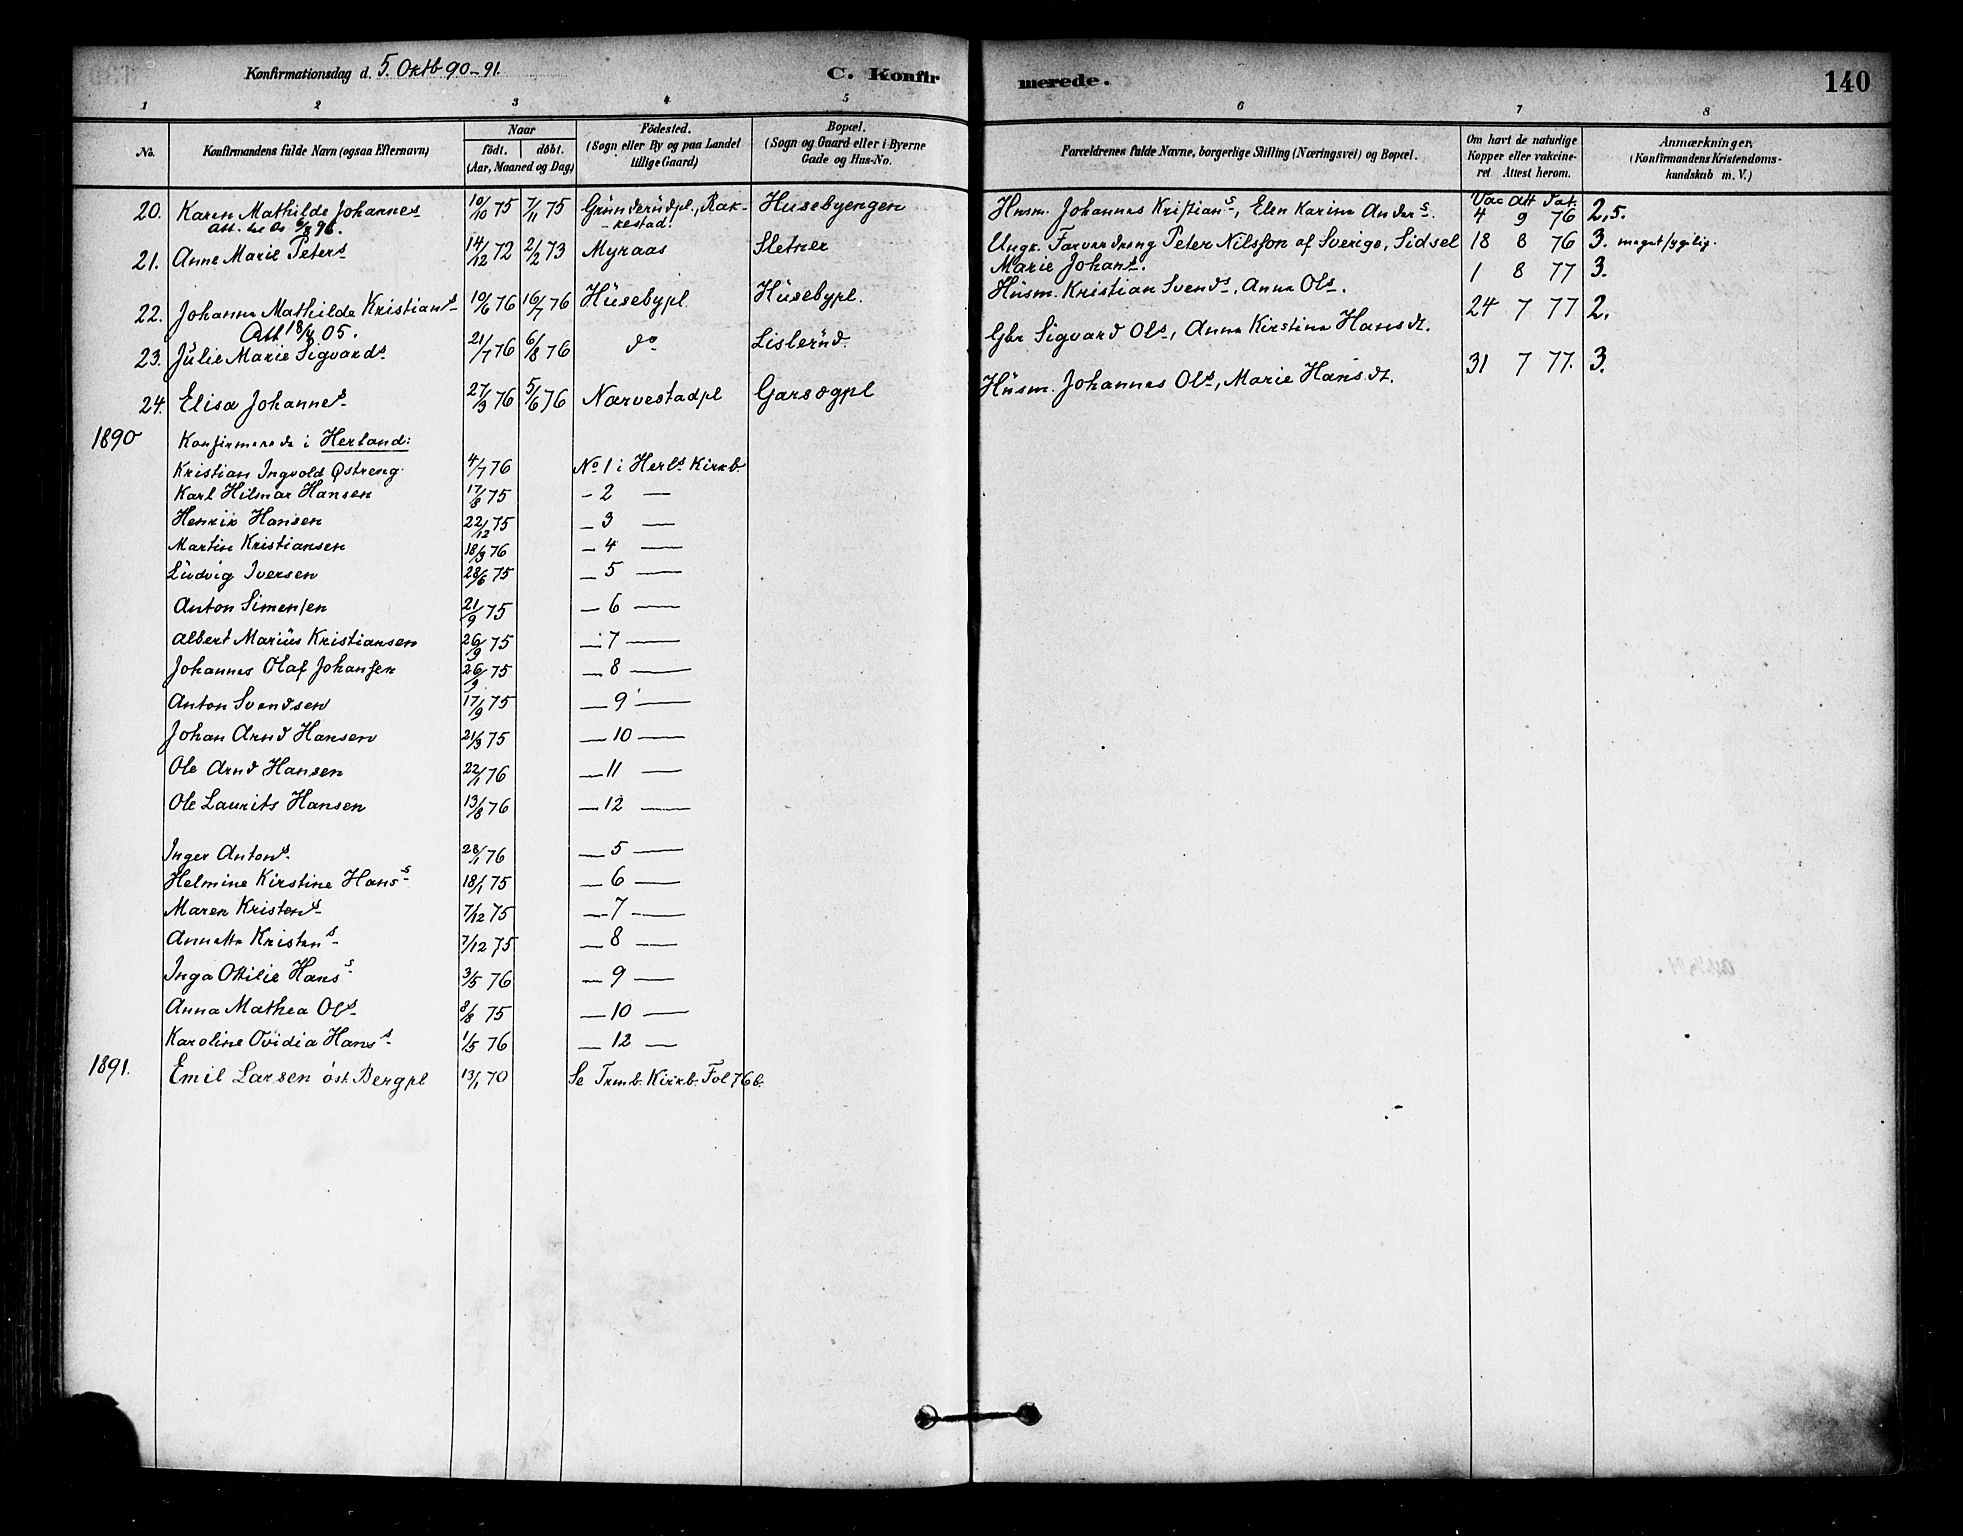 Konfirmationsdag d. 5. Oktb 90-91. C. Konfirmerede. 140
1 2 3 4 5 6 7 8
No. Konfirmandens fulde Navn (ogsaa Efternavn) Naar födt. döbt. (Aar, Maaned og Dag) Födested. (Sogn eller By og paa Landet tillige Gaard) Bopæl. (Sogn og Gaard eller i Byerne Gade og Hus-No. Forældrenes fulde Navne, borgerlige Stilling (Næringsvei) og Bopæl. Om havt de naturlige Kopper eller vakcineret Attest herom. Anmærkninger. (Konfirmandens Kristendomskundskab m. V.)
Vac Att Dat.
20. Karen Mathilde Johannes 10/10 75 7/11 75 Gründerüdpl., Rakkestad! Husebyengen Husm. Johannes Kristians, Elen Karina Anders. 4 9 76 2,5.
21. Anne Marie Peters 14/12 72 2/2 73 Myraas Sletner Ungk. Farverdreng Peter Nilsson af Sverige, Sidsel Marie Johans. 18 8 76 3. meget sygelig.
22. Johanna Mathilde Kristians 10/6 76 16/7 76 Hüsebypl. Hüsebypl. Hüsm. Kristian Svends, Anna Ols. 1 8 77 3.
23. Julie Marie Sigvards 21/7 76 6/8 76 do Lislerüd. Gbr Sigvard Ols, Anna Kirstina Hansdt. 24 7 77 2.
24. Elisa Johannes 27/3 76 5/6 76 Narvestadpl Garsegpl Hüsm. Johannes Ols, Marie Hansdt. 31 7 77. 3.
1890 Konfirmerede i Herland:
Kristian Ingvold Østreng. 4/7 76 No 1 i Herls Kirkb.
Karl Hilmar Hansen 17/8 75 - 2 —
Henrik Hansen 22/12 75 — 3 —
Martin Kristiansen 18/3 76 — 4 —
Lüdvig Iversen 28/6 75 — 5 —
Anton Simensen 21/9 75 — 6 —
Albert Marius Kristiansen 26/9 75 — 7 —
Johannes Olaf Johansen 26/9 75 — 8 —
Anton Svendsen 17/9 75 — 9 —
Johan Arnd Hansen 21/3 75 — 10 —
Ole Arnd Hansen 22/1 76 — 11 —
Ole Laurits Hansen 13/8 76 — 12 —
Inger Antons. 28/1 76 — 5 —
Helmine Kirstine Hans 18/1 75 — 6 —
Maren Kristens 7/12 75 — 7 —
Annette Kristens 7/12 75 — 8 —
Inga Otilie Hans 3/5 76 — 9 —
Anna Mathea Ols 8/8 75 — 10 —
Karoline Ovidia Hans 1/5 76 — 12 —
1891. Emil Larsen öst. Bergpl 13/1 70 Se Trmb. Kirkb. Fol 76 b.